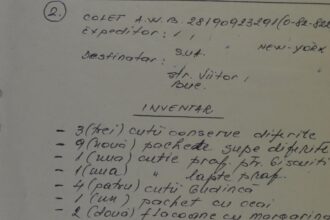 2.
COLET A.W.B. 28190923291(0-82-82
Expeditor: 1,
S.U.A. " NEW-YORK
Destinatar:
str. Viitor,
Buc.
INVENTAR
- 3 (trei) cutii conserve diferite
- 9 (nouă) pachete supe diferite
- 1 (una) cutie praf ptr. biscuiti
- 1 (una) " lapte praf.
- 4 (patru) cutii budincă
- 1 (un) pachet cu ceai
- 2 (două) flacoane cu margarina